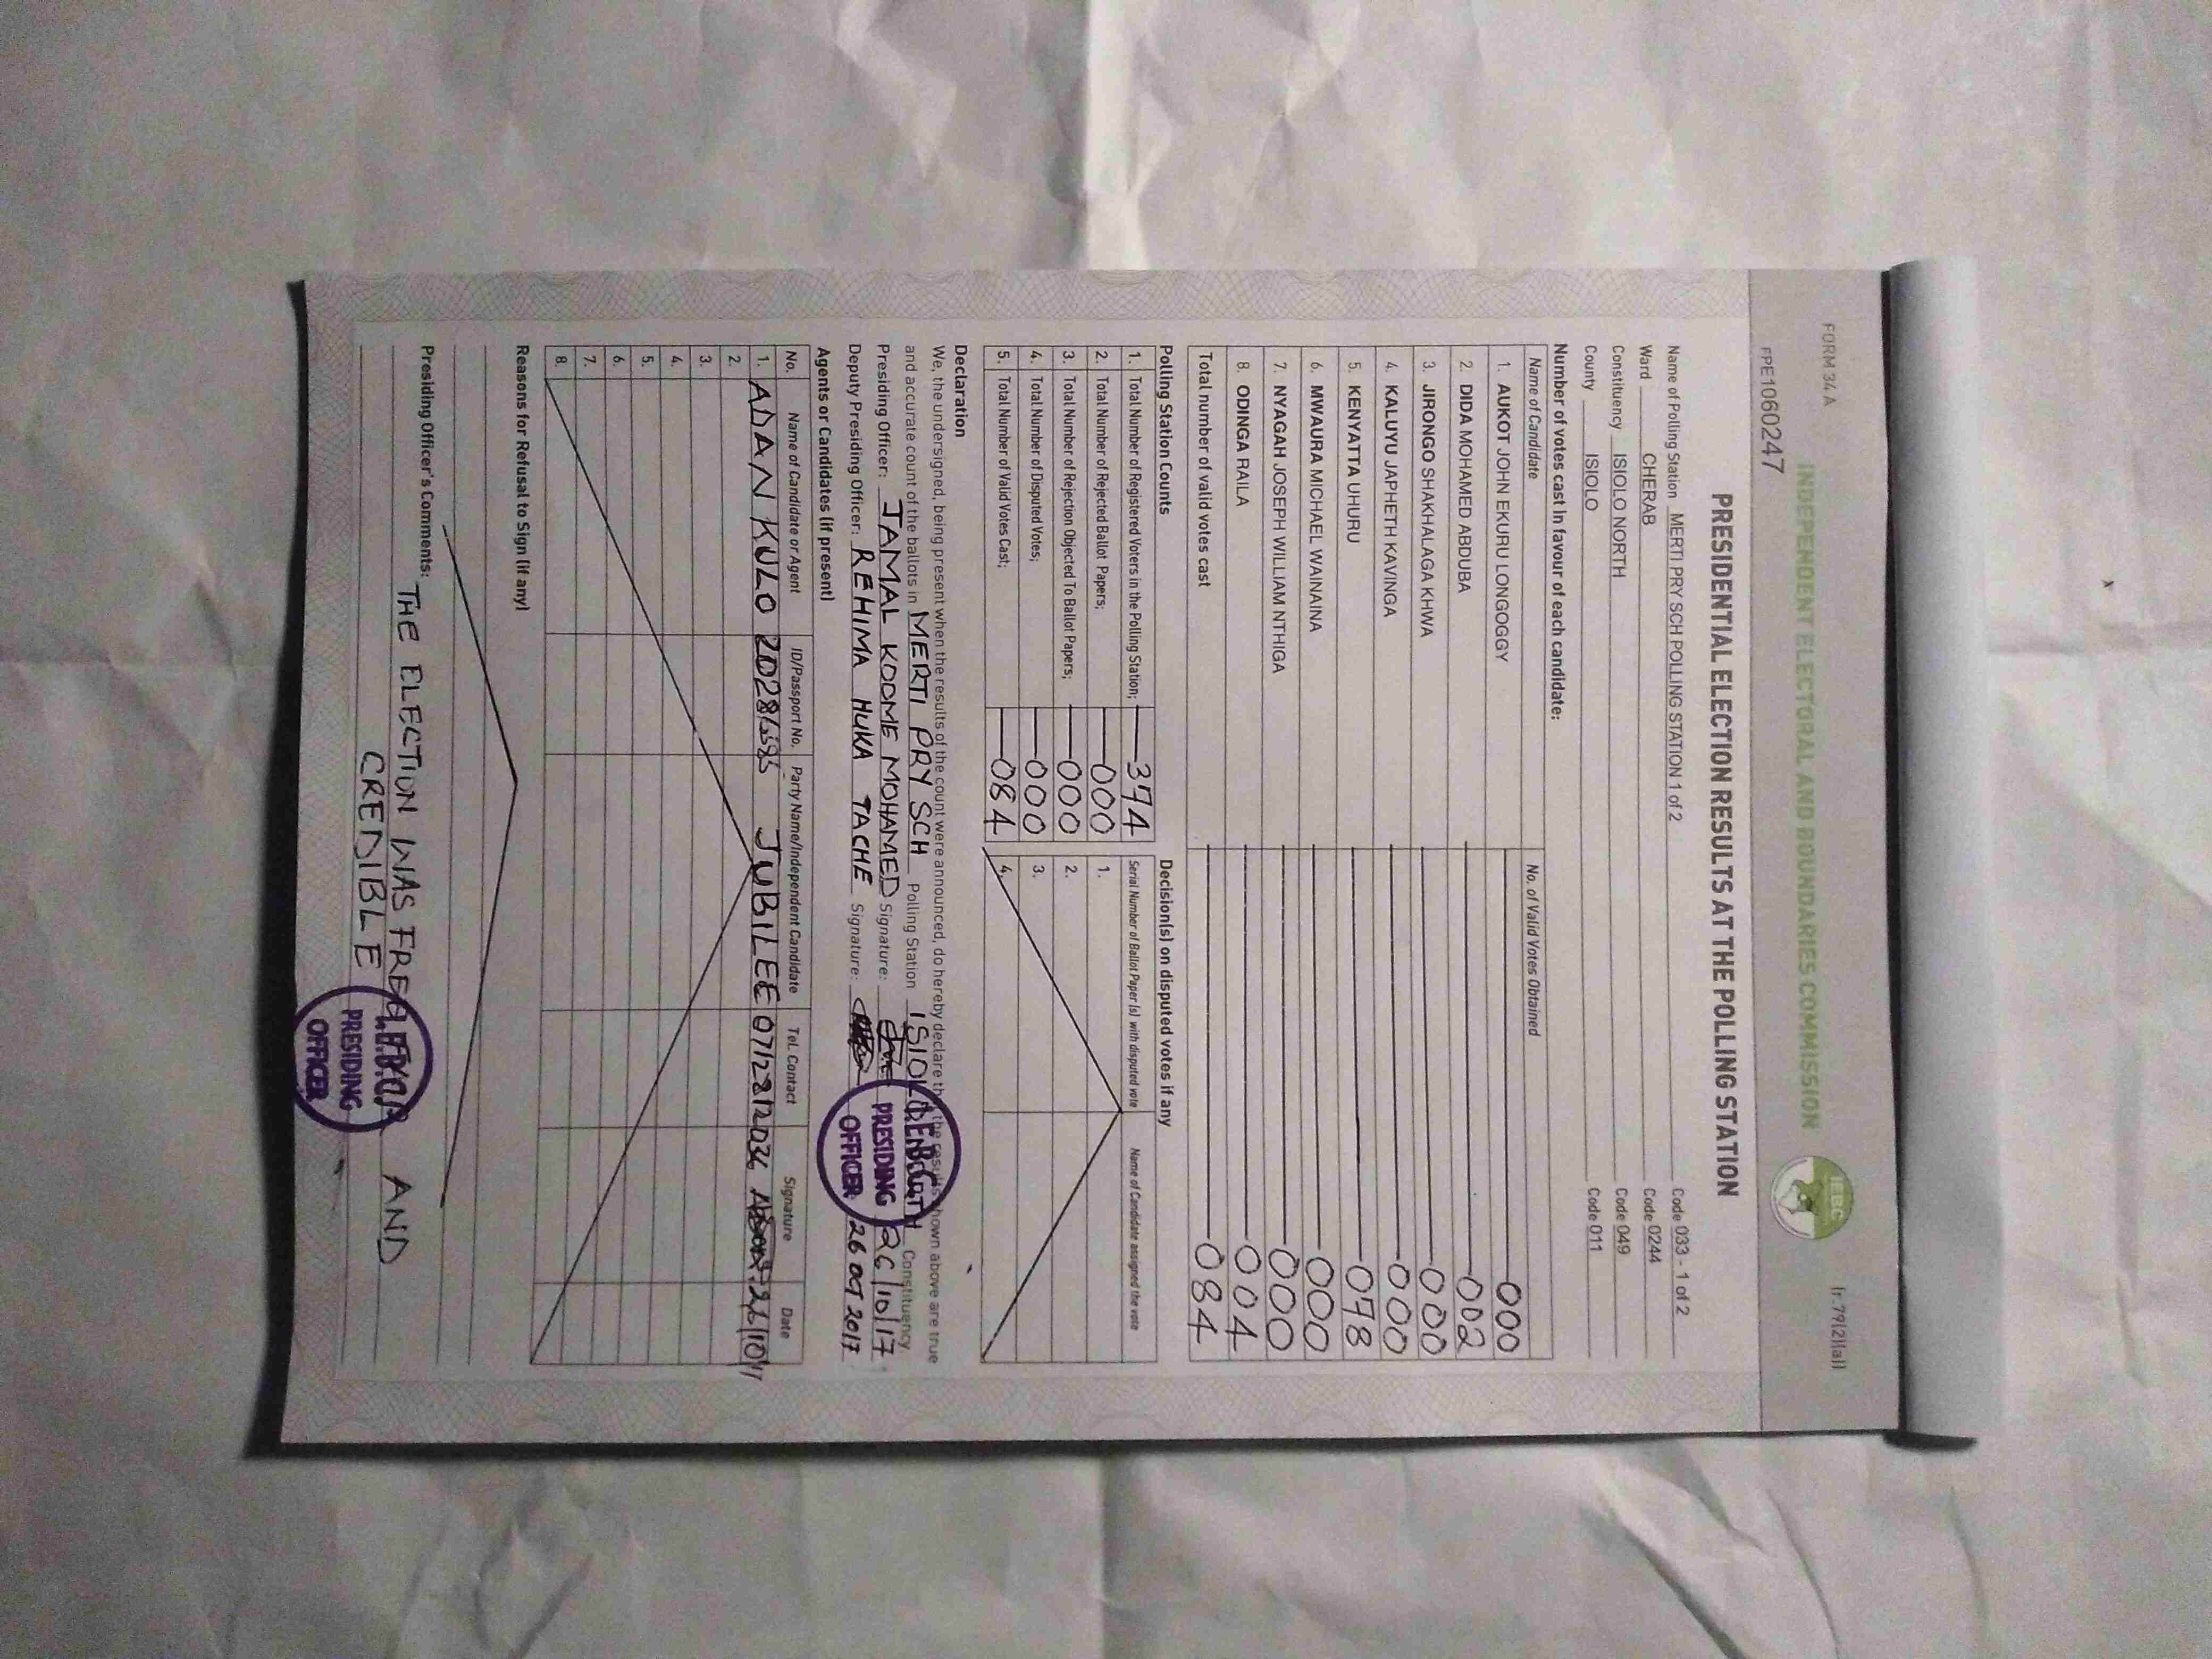 FORM 34A
INDEPENDENT ELECTORAL AND BOUNDARIES COMMISSION
IEBC
(r.79(2)(a))
FPE1060247
PRESIDENTIAL ELECTION RESULTS AT THE POLLING STATION
Name of Polling Station MERTI PRY SCH POLLING STATION 1 of 2 Code 033 - 1 of 2
Ward CHERAB Code 0244
Constituency ISIOLO NORTH Code 049
County ISIOLO Code 011
Number of votes cast in favour of each candidate:
Name of Candidate No. of Valid Votes Obtained
1. AUKOT JOHN EKURU LONGOGGY 000
2. DIDA MOHAMED ABDUBA 002
3. JIRONGO SHAKHALAGA KHWA 000
4. KALUYU JAPHETH KAVINGA 000
5. KENYATTA UHURU 078
6. MWAURA MICHAEL WAINAINA 000
7. NYAGAH JOSEPH WILLIAM NTHIGA 000
8. ODINGA RAILA 004
Total number of valid votes cast 084
Polling Station Counts Decision(s) on disputed votes if any
1. Total Number of Registered Voters in the Polling Station; 374 Serial Number of Ballot Paper (s) with disputed vote Name of Candidate assigned the vote
2. Total Number of Rejected Ballot Papers; 000 1.
3. Total Number of Rejection Objected To Ballot Papers; 000 2.
4. Total Number of Disputed Votes; 000 3.
5. Total Number of Valid Votes Cast; 084 4.
Declaration
We, the undersigned, being present when the results of the count were announced, do hereby declare that the results shown above are true
and accurate count of the ballots in MERTI PRY SCH Polling Station ISIOLO NORTH Constituency
Presiding Officer: JAMAL KOOME MOHAMED Signature: 26/10/17
Deputy Presiding Officer: REHIMA HUKA TACHE Signature: 26 OCT 2017
I.E.B.C.
PRESIDING
OFFICER
Agents or Candidates (if present)
No. Name of Candidate or Agent ID/Passport No. Party Name/Independent Candidate Tel. Contact Signature Date
1. ADAN KULO JUBILEE 0712812036
2.
3.
4.
5.
6.
7.
8.
Reasons for Refusal to Sign (if any)
Presiding Officer's Comments: THE ELECTION WAS FREE AND
CREDIBLE
PRESIDING
OFFICER